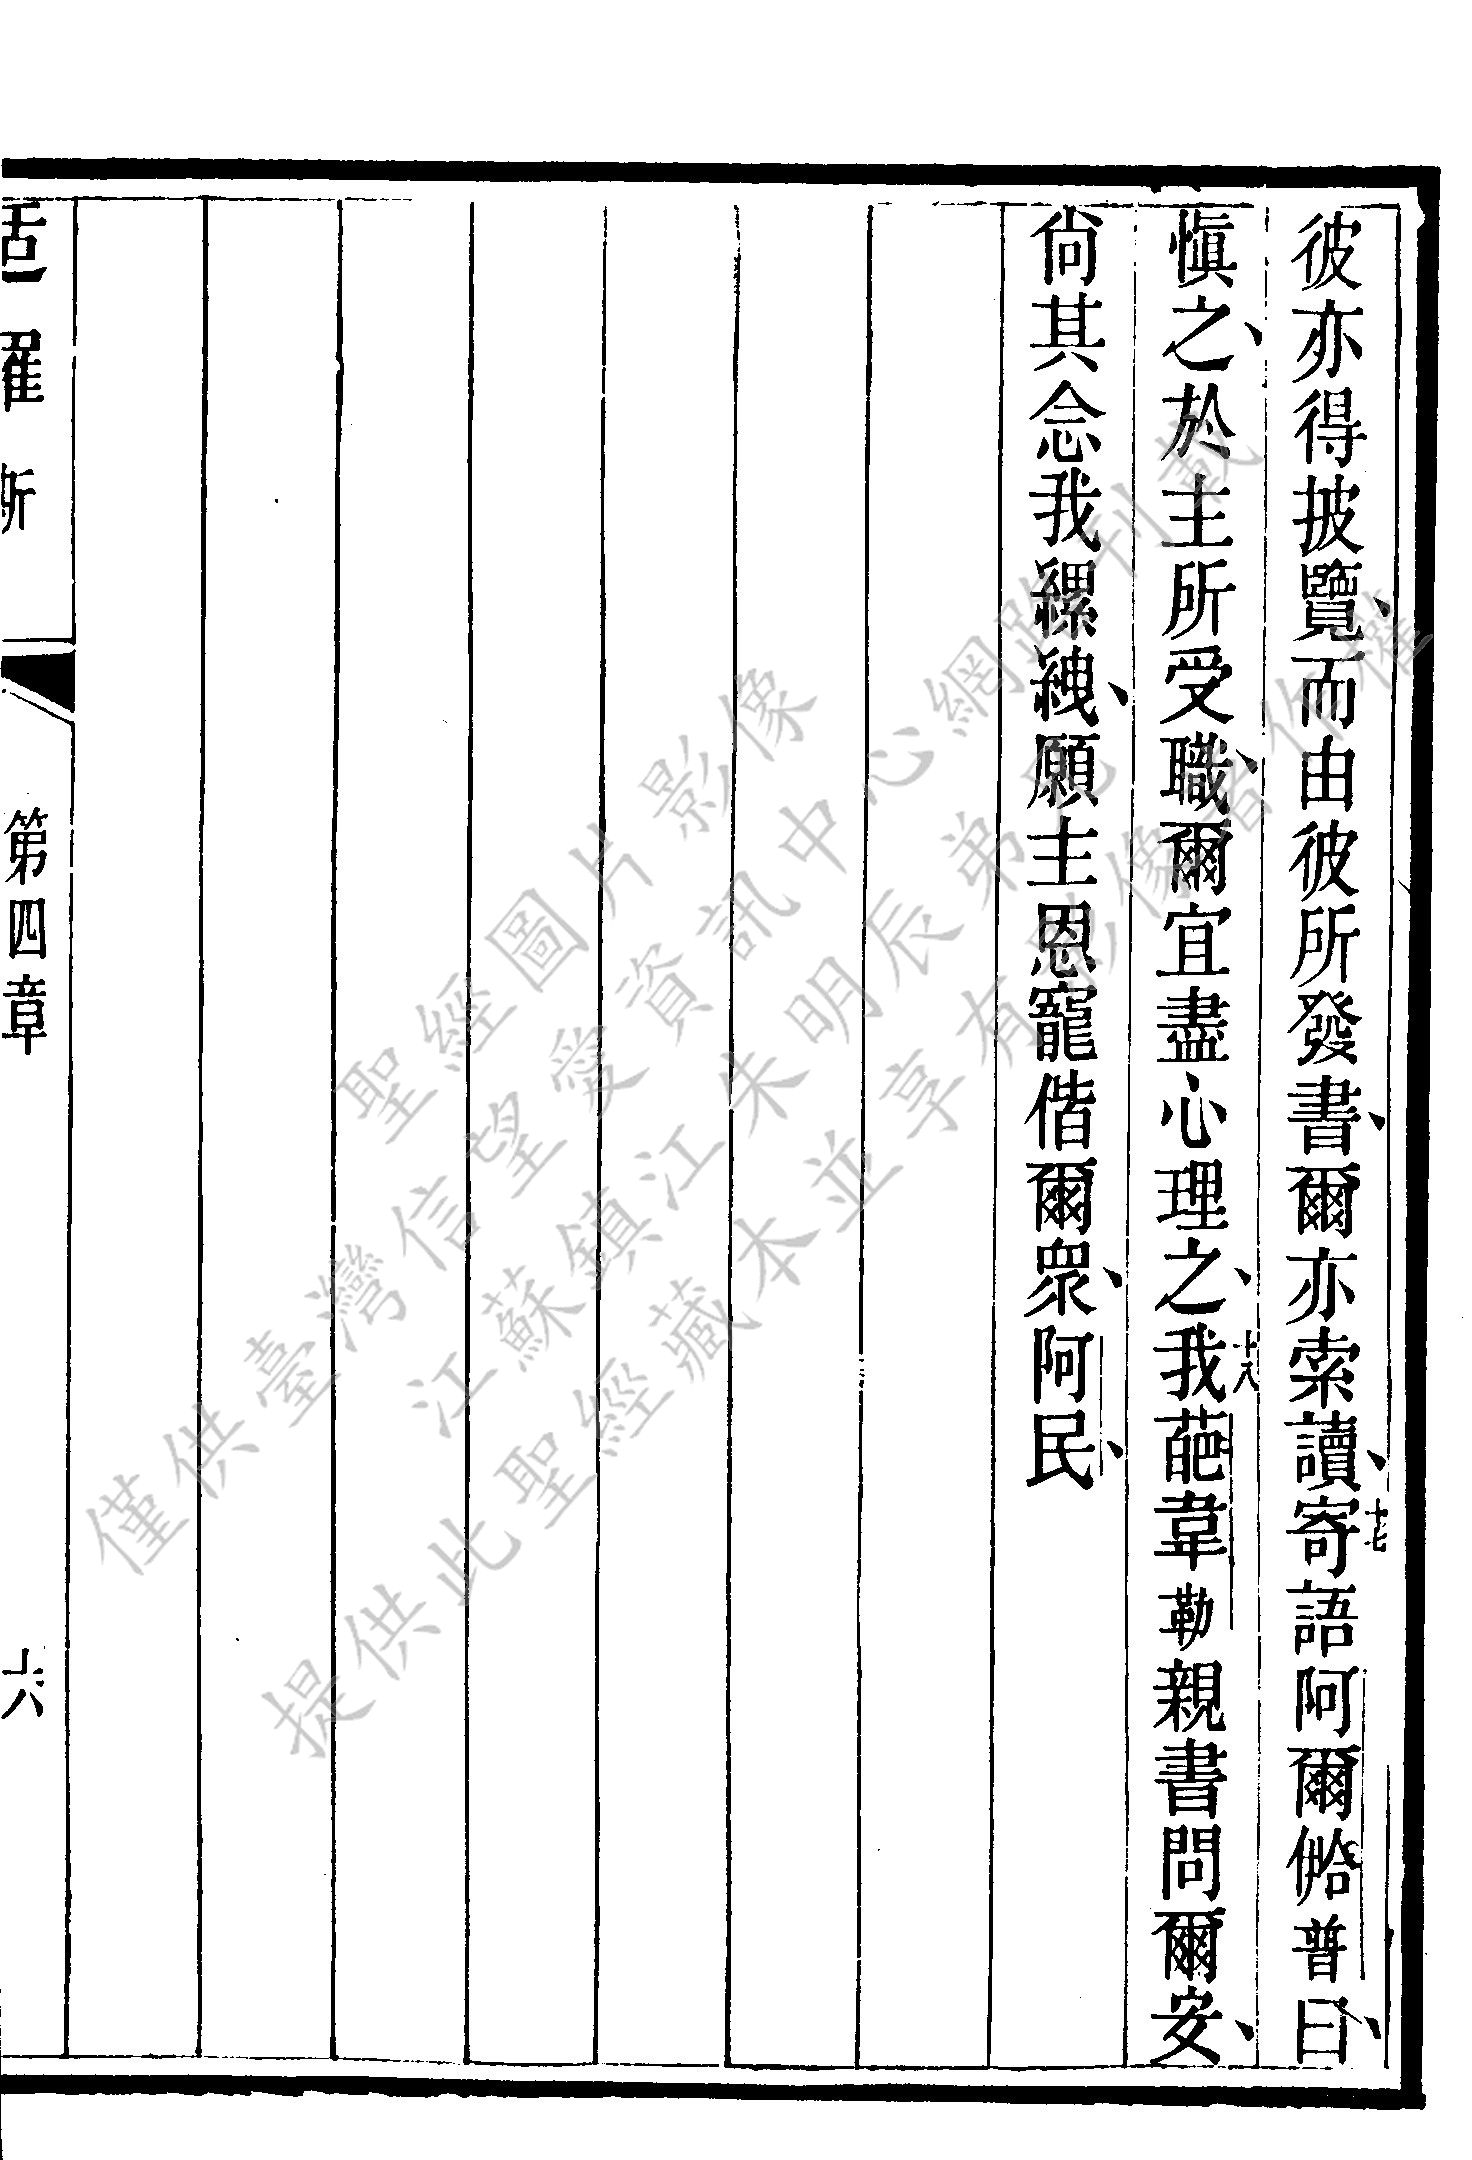 彼亦得披覽、而由彼所發書、爾亦索讀、十七寄語阿爾𠐤普曰、
慎之、於主所受職、爾宜盡心理之、十八我葩韋勒親書問爾安、
尙其念我縲絏、願主恩寵偕爾衆、阿民、
羅斯
第四章
六
聖經圖片影像
僅供臺灣信望愛資訊中心網路刊載
江蘇鎮江朱明辰弟兄
提供此聖經藏本並享有影像著作權